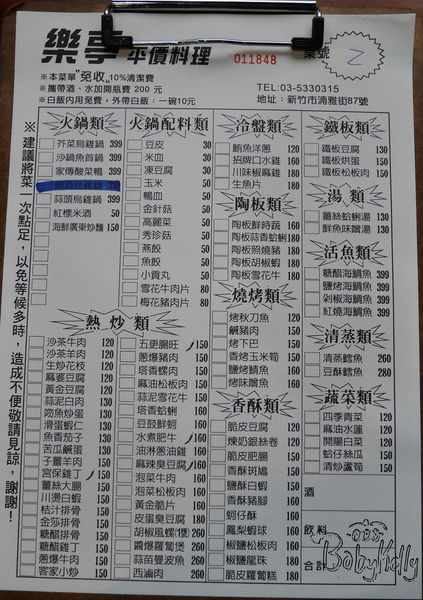 樂亭 平價料理
011848
桌號 2
※本菜單"免收"10%清潔費
※攜帶酒、水加開瓶費 200 元
※白飯內用免費，外帶白飯：一碗10元
TEL:03-5330315
地址：新竹市湳雅街87號
※建議將菜一次點足，以免等候多時，造成不便敬請見諒，謝謝！
火鍋類
芥菜烏雞鍋 399
沙鍋魚首鍋 399
家傳酸菜鴨 399
蒜頭烏雞鍋 399
紅標米酒 50
海鮮廣東炒麵 150
火鍋配料類
豆皮 30
米血 30
凍豆腐 30
玉米 50
鴨血 50
金針菇 50
高麗菜 50
秀珍菇 50
燕餃 50
魚餃 50
小貢丸 50
雪花牛肉片 80
梅花豬肉片 80
冷盤類
鮪魚洋蔥 120
招牌口水雞 160
川味椒麻雞 180
生魚片 180
陶板類
陶板鮮時蔬 160
陶板蒜香蛤蜊 180
陶板照燒豬 180
陶板胡椒蝦 180
陶板雪花牛 180
燒烤類
烤秋刀魚 120
鹹豬肉 150
烤下巴 150
香烤玉米筍 150
鹽烤鯖魚 160
烤味噌雞 160
香酥類
脆皮豆腐 120
煉奶銀絲卷 120
脆皮肥腸 150
香酥斑鳩 150
鹽酥白蝦 150
香酥豬腳 160
蚵仔酥 160
鳳梨蝦球 160
椒鹽松板肉 160
椒鹽龍珠 180
脆皮蘿蔔糕 180
鐵板類
鐵板豆腐 130
鐵板烘蛋 150
鐵板松板肉 150
湯類
薑絲蛤蜊湯 130
鮮魚味噌湯 130
活魚類
糖醋海鱺魚 399
鹽烤海鱺魚 399
剁椒海鱺魚 399
紅燒海鱺魚 399
清蒸類
清蒸鱈魚 260
豆酥鱈魚 280
蔬菜類
四季青菜 120
麻油水蓮 120
開陽白菜 120
蛤仔絲瓜 150
清炒蘆筍 150
酒
飲料
合計
熱炒類
沙茶牛肉 120
沙茶羊肉 120
生炒花枝 120
麻婆豆腐 120
黃金豆腐 120
蒜泥白肉 130
吻魚炒蛋 130
滑蛋蝦仁 130
魚香茄子 130
苦瓜鹹蛋 130
子薑羊肉 150
宮保雞丁 150
薑絲大腸 150
川燙白蝦 150
桔汁排骨 150
金莎排骨 150
糖醋排骨 150
糖醋雞丁 150
蔥爆牛肉 150
客家小炒 150
五更腸旺 150
蔥爆豬肉 150
塔香螺肉 150
麻油松板肉 150
蒜泥雪花牛 150
塔香蛤蜊 160
豆鼓鮮蚵 160
水煮肥牛 160
油淋蔥油雞 160
麻辣臭豆腐 160
泡菜牛肉 160
泡菜松板肉 160
黃金脆片 160
皮蛋臭豆腐 180
胡椒風螺 200
醬爆鷄薄堡 200
蒜苗曼波魚 260
西滷肉 260
BabyKelly